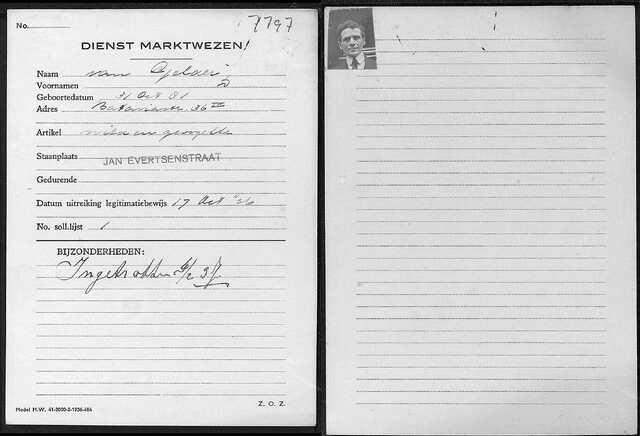 No. 7797
DIENST MARKTWEZEN
Naam van Gelder
Voornamen
Geboortedatum 31 Oct
Adres Bataviastr. 36 III
Artikel
Staanplaats JAN EVERTSENSTRAAT
Gedurende
Datum uitreiking legitimatiebewijs 17 Oct '36
No. soll.lijst 1
BIJZONDERHEDEN:
Ingetrokken 6/2 37
Model M.W. 41-2000-2-1936-484
Z. O. Z.